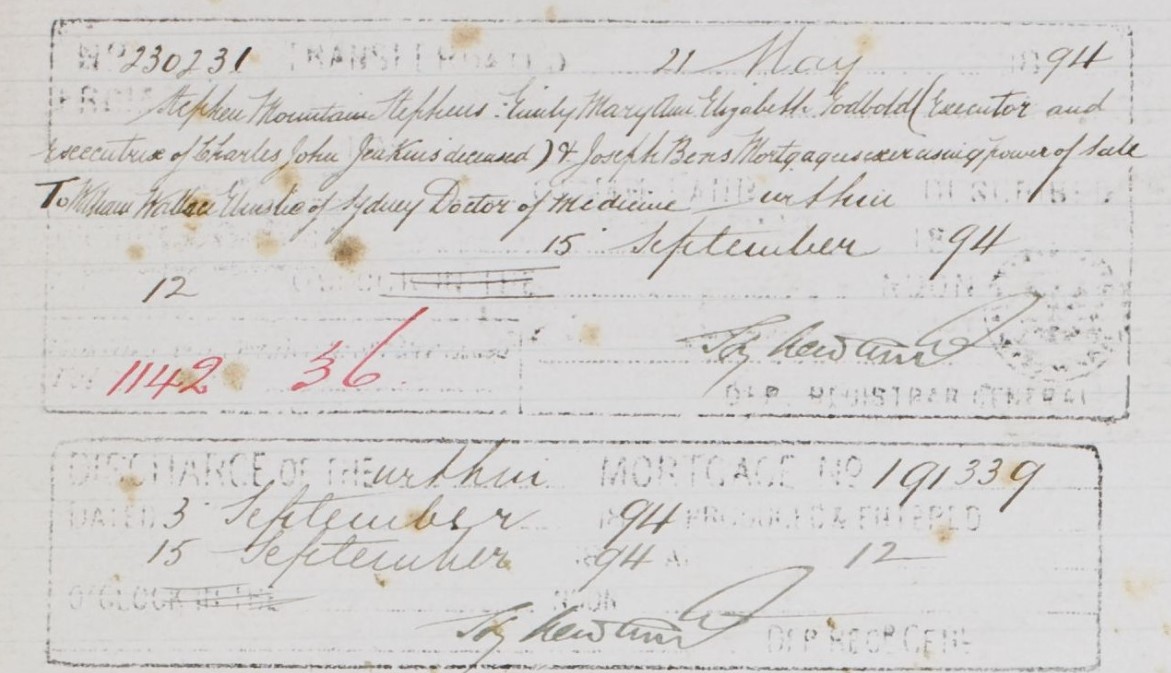 No 230231 TRANSFER DATED 21 May 1894
FROM Stephen Mountain Stephens Emily Mary Ann Elizabeth Godbold (Executor and
Executrix of Charles John Jeakins deceased) & Joseph Bens Mortgagees exercising power of sale
To William Wallace of Sydney Doctor of Medicine within
15 September 1894
12 O'CLOCK IN THE NOON
1142 36
DEP REGISTRAR GENERAL
DISCHARGE OF THE within MORTGAGE No 191339
DATED 3 September 1894 PRODUCED & ENTERED
15 September 1894 AT 12
O'CLOCK IN THE NOON
DEP REG GENL